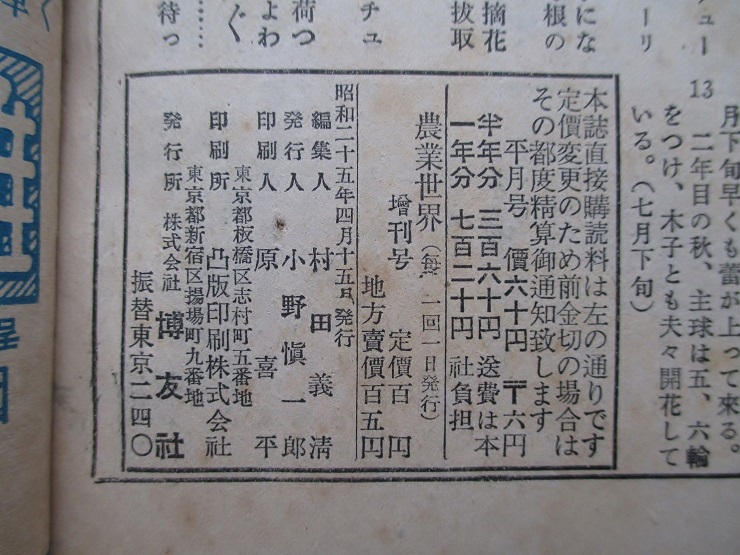 月下旬早くも蕾が上って来る。
13 二年目の秋、主球は五、六輪
をつけ、木子とも夫々開花して
いる。（七月下旬）
本誌直接購読料は左の通りです
定價変更のため前金切の場合は
その都度精算御通知致します
平月号 價六十円 〒六円
半年分 三百六十円 送費は本
一年分 七百二十円 社負担
農業世界（毎 一回一日発行）
増刊号 定価百円
地方賣價百五円
昭和二十五年四月十五日発行
編集人 村田義清
発行人 小野愼一郎
印刷人 原喜平
東京都板橋区志村町五番地
印刷所 凸版印刷株式会社
東京都新宿区揚場町九番地
発行所 株式会社 博友社
振替東京二四〇
摘花
抜取
荷つ
よわ
ぐ
待っ